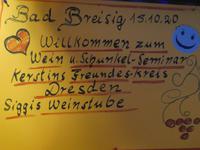 Bad Breisig 15.10.20
Willkommen zum
Wein u. Schunkel-Seminar
Kerstins Freundes-kreis
Dresden
Siggis Weinstube